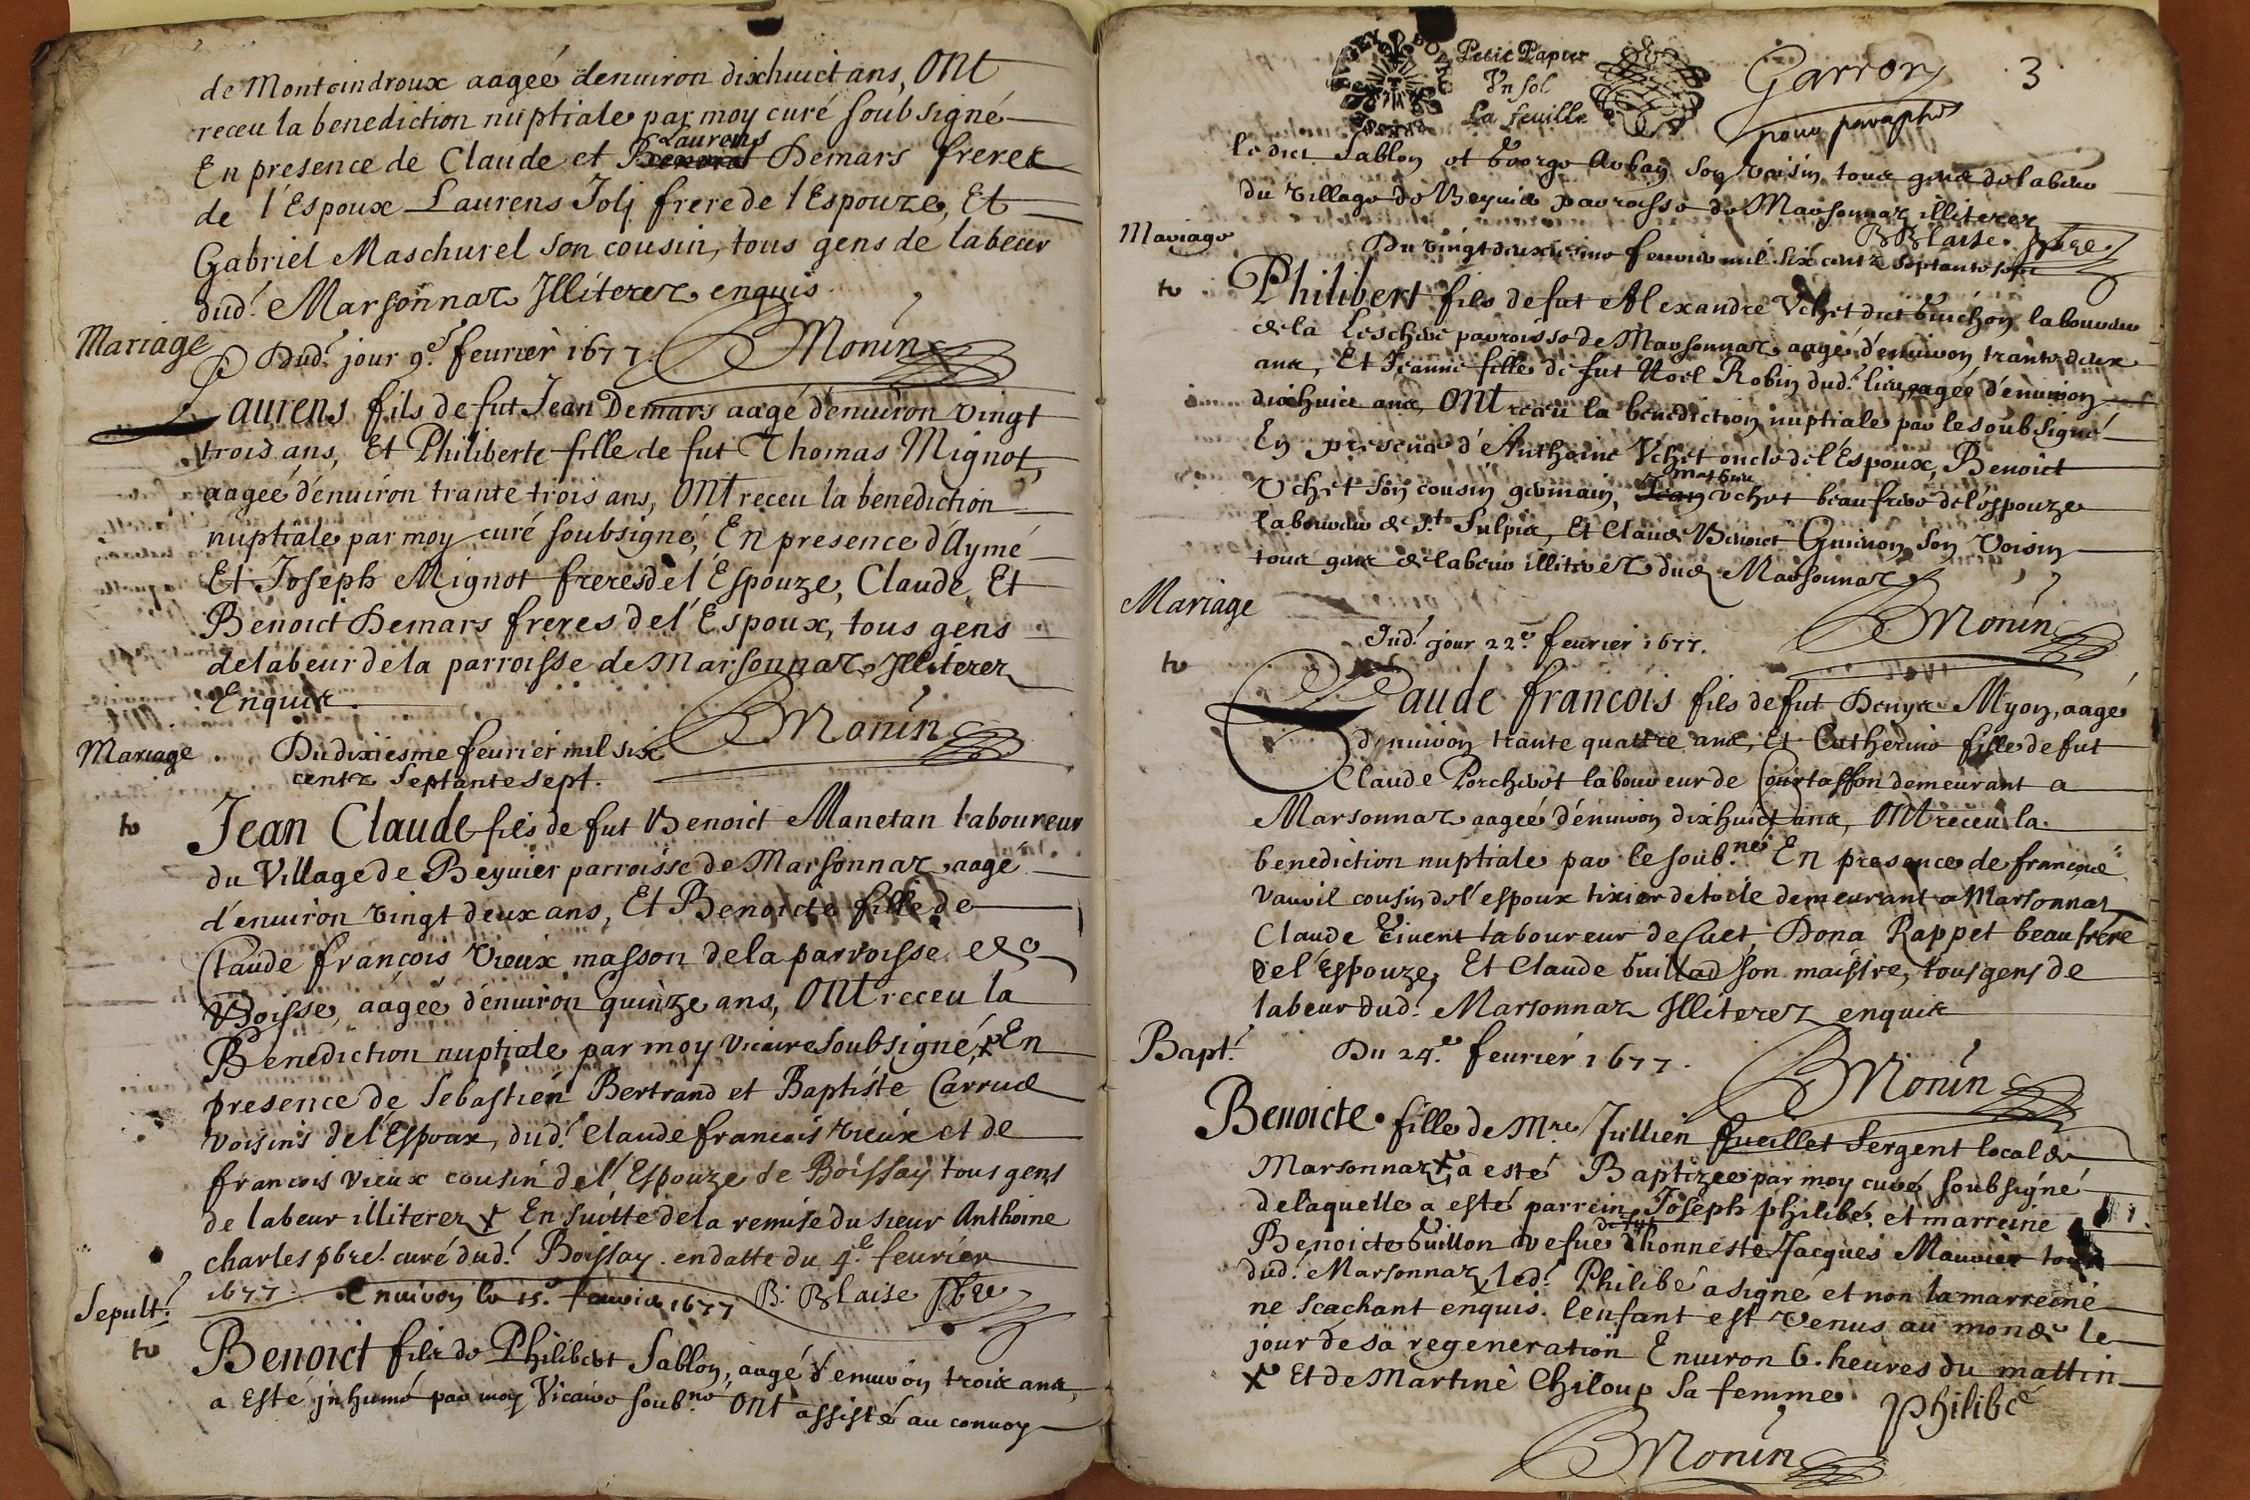 de Montoindroux aagée denuiron dixhuict ans, Ont
receu la benediction nuptiale par moy curé soubsigné
Laurens
En presence de Claude et Benoict Demars freres
de l'Espoux Laurens Joly frere de l'Espouze, Et
Gabriel Maschurel son cousin, tous gens de labeur
dud. Marsonnaz Illiterez enquis
Mariage
Dud. jour 9e feurier 1677. BMonin
Laurens fils de fut Jean Demars aagé denuiron vingt
trois ans, Et Philiberte fille de fut Thomas Mignot,
aageé d'enuiron trante trois ans, Ont receu la benediction
nuptiale par moy curé soubsigné, En presence d'Aymé
Et Joseph Mignot freres de l'Espouze, Claude, Et
Benoict Demars freres de l'Espoux, tous gens
de labeur de la parroisse de Marsonnaz Illiterez
Enquis. BMonin
Mariage Du dixiesme feurier mil six
centz septante sept.
to Jean Claude fils de fut Benoict Manetan laboureur
du Village de Beyuier parroisse de Marsonnaz aagé
d'enuiron vingt deux ans, Et Benoicte fille de
Claude françois Vieux masson de la parroisse de
Boisse, aageé d'enuiron quinze ans, Ont receu la
Benediction nuptiale par moy vicaire soubsigné, En
presence de Sebastien Bertrand et Baptiste Carrud
voisins de l'Espoux, dud. Claude francois vieux et de
francois vieux cousin de l'Espouze de Boissay tous gens
de labeur illiterez En suitte de la remise du sieur Anthoine
charles pbre curé dud. Boissay en datte du 4e feurier
1677. Enuiron le 15e feurier 1677 B. Blaise pbre
Sepult.
to Benoict fils de Philibert Sablon, aagé d'enuiron trois ans,
a esté jnhumé par moy Vicaire soubné Ont assisté au conuoy
Petit Papier
Vn sol
La feuille
Garron
pour paraphe
3
le dict Sablon et George Auban son voisin tous gens de labeur
du village de Beyuie parroisse de Marsonnaz illiterez
BBlaise pbre
Mariage Du vingtdeuxiesme feurier mil six centz septante sept
to Philibert fils de fut Alexandre Vchet dict Guichon laboureur
de la Leschere parroisse de Marsonnaz aagé d'enuiron trante deux
ans, Et Jeanne fille de fut Noël Robin dud. lieu, aageé d'enuiron
dixhuict ans, Ont receu la benediction nuptiale par le soubsigné
En presence d'Anthoine Vchet oncle de l'Espoux, Benoict
Vchet son cousin germain, Jean vchet beau frere de l'espouze
laboureur de St. Sulpice, Et Claude Benoict Guiron son voisin
tous gens de labeur illiterez dud. Marsonnaz
Mariage BMonin
Dud. jour 22e feurier 1677.
to Claude francois fils de fut Denys Myon, aagé
d'enuiron trante quattre ans, Et Catherine fille de fut
Claude Porcherot laboureur de Courtaffon demeurant a
Marsonnaz aageé d'enuiron dixhuict ans, Ont receu la
benediction nuptiale par le soub.né En presence de francois
Vauuil cousin de l'espoux tixier de toile demeurant a Marsonnaz
Claude Viuent laboureur de Cuet, Dona Rappet beau frere
de l'Espouze, Et Claude Guillad son maistre, tous gens de
labeur dud. Marsonnaz Illiterez enquis
Bapt. Du 24e feurier 1677. BMonin
Benoicte fille de Mre Jullien fueillet Sergent local de
Marsonnaz, a esté Baptizee par moy curé soubsigné
de laquelle a esté parrein Joseph philibé, et marreine
de fut
Benoicte Guillon vefue d'honneste Jacques Mauuier tous
dud. Marsonnaz led. Philibé a signé et non la marreine
ne scachant enquis. l'enfant est venus au monde le
jour de sa regeneration Enuiron 6. heures du mattin
Et de Martine Chiloup sa femme. philibé
BMonin